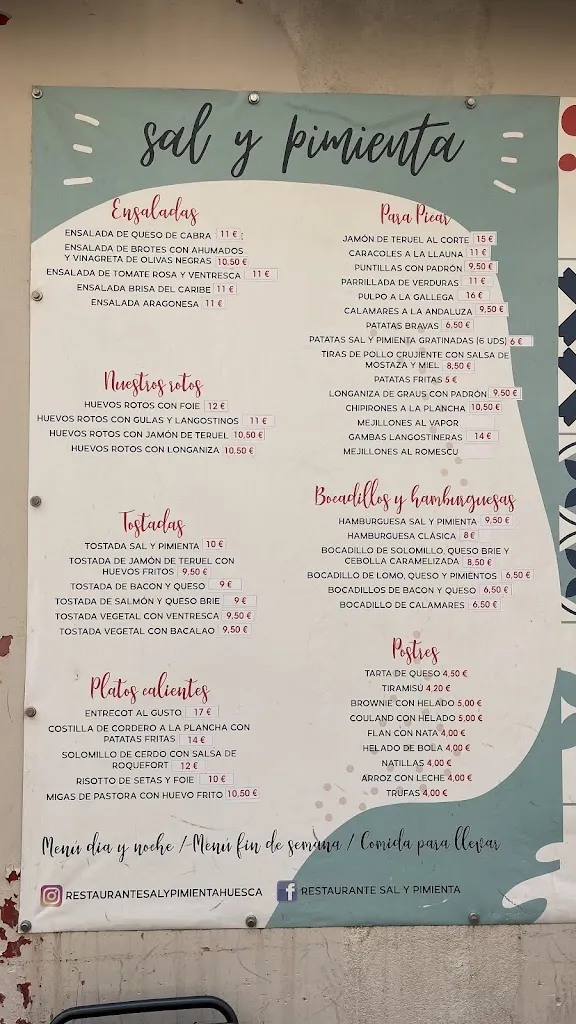 sal y pimienta
Ensaladas
ENSALADA DE QUESO DE CABRA 11 €
ENSALADA DE BROTES CON AHUMADOS
Y VINAGRETA DE OLIVAS NEGRAS 10.50 €
ENSALADA DE TOMATE ROSA Y VENTRESCA 11 €
ENSALADA BRISA DEL CARIBE 11 €
ENSALADA ARAGONESA 11 €
Nuestros rotos
HUEVOS ROTOS CON FOIE 12 €
HUEVOS ROTOS CON GULAS Y LANGOSTINOS 11 €
HUEVOS ROTOS CON JAMÓN DE TERUEL 10,50 €
HUEVOS ROTOS CON LONGANIZA 10.50 €
Tostadas
TOSTADA SAL Y PIMIENTA 10 €
TOSTADA DE JAMÓN DE TERUEL CON
HUEVOS FRITOS 9,50 €
TOSTADA DE BACON Y QUESO 9 €
TOSTADA DE SALMÓN Y QUESO BRIE 9 €
TOSTADA VEGETAL CON VENTRESCA 9,50 €
TOSTADA VEGETAL CON BACALAO 9,50 €
Platos calientes
ENTRECOT AL GUSTO 17 €
COSTILLA DE CORDERO A LA PLANCHA CON
PATATAS FRITAS 14 €
SOLOMILLO DE CERDO CON SALSA DE
ROQUEFORT 12 €
RISOTTO DE SETAS Y FOIE 10 €
MIGAS DE PASTORA CON HUEVO FRITO 10,50 €
Para Picar
JAMÓN DE TERUEL AL CORTE 15 €
CARACOLES A LA LLAUNA 11 €
PUNTILLAS CON PADRÓN 9,50 €
PARRILLADA DE VERDURAS 11 €
PULPO A LA GALLEGA 16 €
CALAMARES A LA ANDALUZA 9,50 €
PATATAS BRAVAS 6,50 €
PATATAS SAL Y PIMIENTA GRATINADAS (6 UDS) 6 €
TIRAS DE POLLO CRUJIENTE CON SALSA DE
MOSTAZA Y MIEL 8,50 €
PATATAS FRITAS 5 €
LONGANIZA DE GRAUS CON PADRÓN 9,50 €
CHIPIRONES A LA PLANCHA 10,50 €
MEJILLONES AL VAPOR
GAMBAS LANGOSTINERAS 14 €
MEJILLONES AL ROMESCU
Bocadillos y hamburguesas
HAMBURGUESA SAL Y PIMIENTA 9,50 €
HAMBURGUESA CLÁSICA 8 €
BOCADILLO DE SOLOMILLO, QUESO BRIE Y
CEBOLLA CARAMELIZADA 8,50 €
BOCADILLO DE LOMO, QUESO Y PIMIENTOS 6,50 €
BOCADILLOS DE BACON Y QUESO 6,50 €
BOCADILLO DE CALAMARES 6,50 €
Postres
TARTA DE QUESO 4,50 €
TIRAMISÚ 4,20 €
BROWNIE CON HELADO 5,00 €
COULAND CON HELADO 5,00 €
FLAN CON NATA 4,00 €
HELADO DE BOLA 4,00 €
NATILLAS 4,00 €
ARROZ CON LECHE 4,00 €
TRUFAS 4,00 €
Menú día y noche / Menú fin de semana / Comida para llevar
RESTAURANTESALYPIMIENTAHUESCA
RESTAURANTE SAL Y PIMIENTA